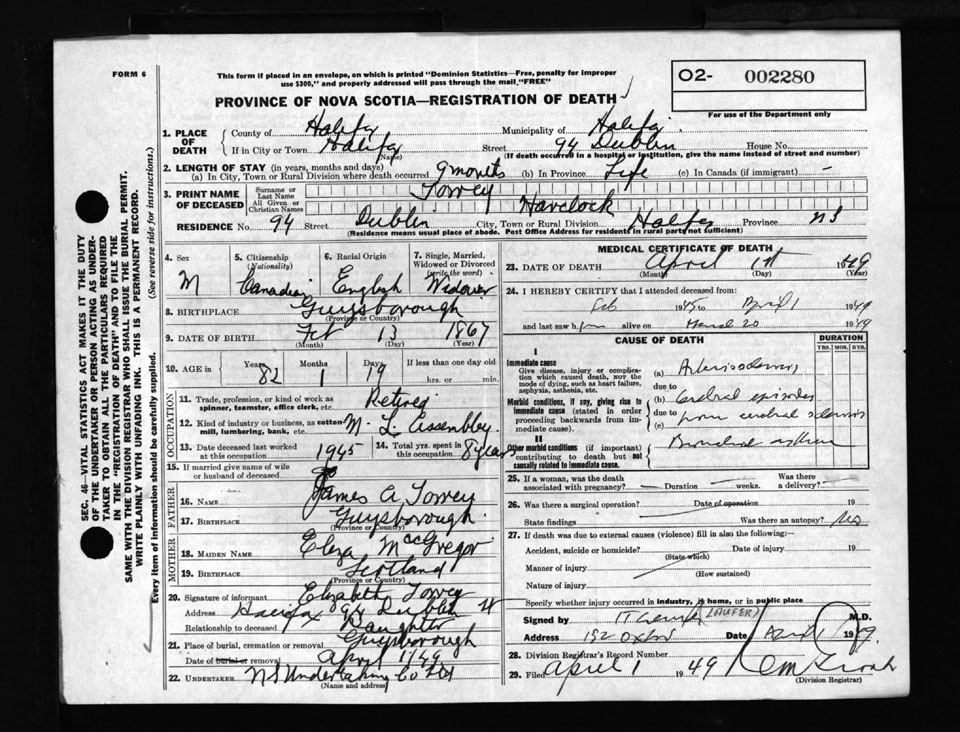 FORM 6
This form if placed in an envelope, on which is printed "Dominion Statistics—Free, penalty for improper
use $300," and properly addressed will pass through the mail "FREE"
PROVINCE OF NOVA SCOTIA—REGISTRATION OF DEATH
O2- 002280
For use of the Department only
1. PLACE OF DEATH { County of Halifax Municipality of Halifax
If in City or Town Halifax Street 94 Dublin House No.
(Name) (If death occurred in a hospital or institution, give the name instead of street and number)
2. LENGTH OF STAY (in years, months and days)
(a) In City, Town or Rural Division where death occurred 9 months (b) In Province Life (c) In Canada (if immigrant) —
3. PRINT NAME OF DECEASED { Surname or Last Name Torrey
All Given or Christian Names Havelock
RESIDENCE No. 94 Street Dublin City, Town or Rural Division Halifax Province NS
(Residence means usual place of abode. Post Office Address for residents in rural parts not sufficient)
4. Sex M
5. Citizenship (Nationality) Canadian
6. Racial Origin English
7. Single, Married, Widowed or Divorced (write the word) Widower
8. BIRTHPLACE Guysborough
(Province or Country)
9. DATE OF BIRTH Feb 13 1867
(Month) (Day) (Year)
10. AGE in { Years 82 Months 1 Days 19 If less than one day old
hrs. or min.
OCCUPATION
11. Trade, profession, or kind of work as spinner, teamster, office clerk, etc. Retired
12. Kind of industry or business, as cotton mill, lumbering, bank, etc. M. L. Assembley
13. Date deceased last worked at this occupation 1945
14. Total yrs. spent in this occupation 8 years
15. If married give name of wife or husband of deceased
FATHER
16. NAME James A Torrey
17. BIRTHPLACE Guysborough
(Province or Country)
MOTHER
18. MAIDEN NAME Eliza McGregor
19. BIRTHPLACE Scotland
(Province or Country)
20. Signature of informant Elizabeth Torrey
Address Halifax 94 Dublin St
Relationship to deceased Daughter
21. Place of burial, cremation or removal Guysborough
Date of burial or removal April 1149
22. UNDERTAKER N S Undertaking Co Ltd
(Name and address)
MEDICAL CERTIFICATE OF DEATH
23. DATE OF DEATH April 1st 1949
(Month) (Day) (Year)
24. I HEREBY CERTIFY that I attended deceased from:
Feb to April 1 1949
and last saw him alive on March 20 1949
CAUSE OF DEATH
DURATION
YRS. MOS. DYS.
I
Immediate cause
Give disease, injury or complication which caused death, not the mode of dying, such as heart failure, asphyxia, asthenia, etc.
(a) Arteriosclerosis
due to
Morbid conditions, if any, giving rise to immediate cause (stated in order proceeding backwards from immediate cause).
(b) Cerebral episodes
due to
(c) from cerebral sclerosis
II
Other morbid conditions (if important) contributing to death but not causally related to immediate cause.
Bronchial asthma
25. If a woman, was the death associated with pregnancy? Duration weeks. Was there a delivery?
26. Was there a surgical operation? Date of operation 19
State findings Was there an autopsy? No
27. If death was due to external causes (violence) fill in also the following:
Accident, suicide or homicide? Date of injury 19
(State which)
Manner of injury
(How sustained)
Nature of injury
Specify whether injury occurred in industry, in home, or in public place
Signed by (LAUFER) M.D.
Address 192 Oxford Date April 1 1949.
28. Division Registrar's Record Number
29. Filed April 1 1949
(Division Registrar)
SEC. 46—VITAL STATISTICS ACT MAKES IT THE DUTY
OF THE UNDERTAKER OR PERSON ACTING AS UNDER-
TAKER TO OBTAIN ALL THE PARTICULARS REQUIRED
IN THE "REGISTRATION OF DEATH" AND TO FILE THE
SAME WITH THE DIVISION REGISTRAR WHO SHALL ISSUE THE BURIAL PERMIT.
WRITE PLAINLY WITH UNFADING INK. THIS IS A PERMANENT RECORD.
Every item of information should be carefully supplied. (See reverse side for instructions.)